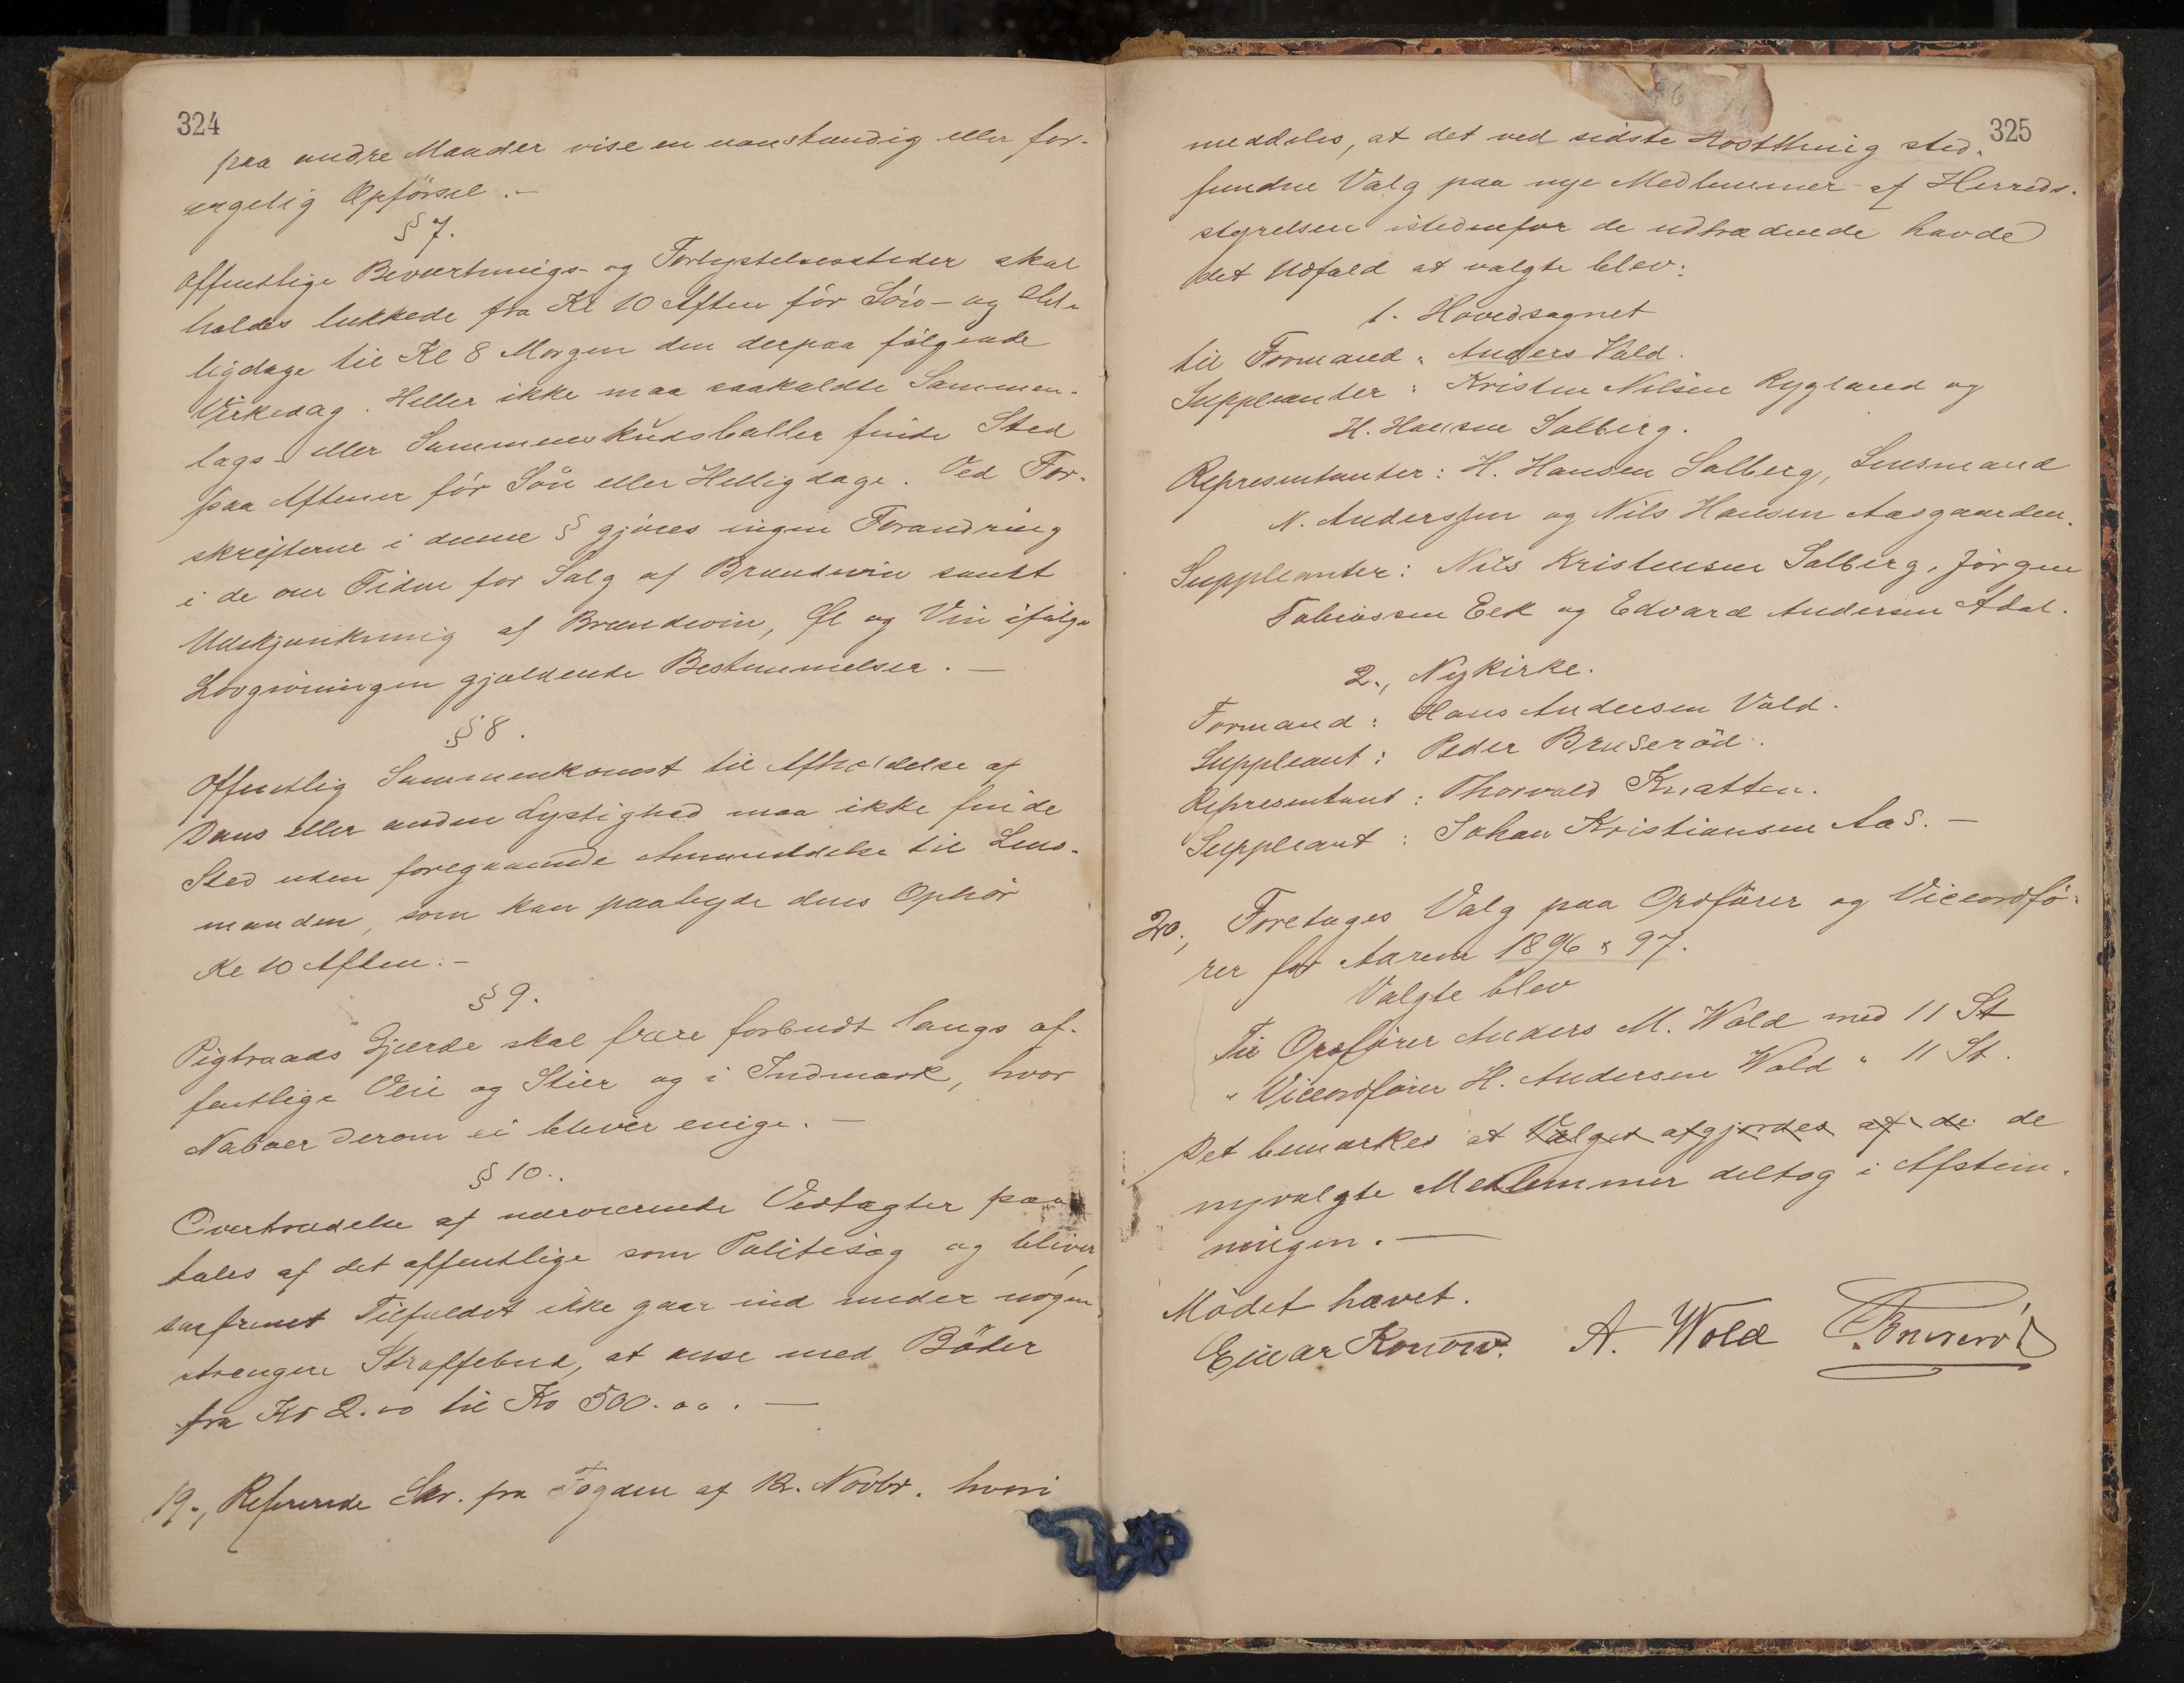 324
paa andre Maader vise en uanstændig eller for-
argelig Opførsel.-
§ 7.
Offentlige Beværtnings- og Forlystelsessteder skal
holdes lukkede fra Kl 10 Aften før Søn- og Hel-
ligdage til Kl 8 Morgen den derpaa følgende
Virkedag. Heller ikke maa saakaldte Sammen-
lags- eller Sammenskudsballer finde Sted
paa Aftener før Søn eller Helligdage. Ved For-
skrifterne i denne § gjøres ingen Forandring
i de om Tiden for Salg af Brændevin samt
Udskjænkning af Brændevin, Øl og Vin ifølge
Lovgivningen gjældende Bestemmelser.-
§ 8.
Offentlig Sammenkomst til Afholdelse af
Dans eller anden Lystighed maa ikke finde
Sted uden foregaaende Anmeldelse til Lens-
manden, som kan paabyde dens Ophør
Kl 10 Aften.-
§ 9.
Pigtraads Gjærde skal være forbudt langs of-
fentlige Veie og Stier og i Indmark, hvor
Naboer derom ei bliver enige.-
§ 10.
Overtrædelse af nærværende Vedtægter paa-
tales af det offentlige som Politisag og bliver,
saafremt Tilfældet ikke gaar ind under nogen
strengere Straffebud, at anse med Bøder
fra Kr 2.00 til Kr 500.00.-
19., Refererede Skr. fra Fogden af 12. Novbr. hvori
325
meddeles, at det ved sidste Høstthing sted-
fundne Valg paa nye Medlemmer af Herreds-
styrelsen istedenfor de udtrædende havde
det Udfald at valgte blev:
1. Hovedsognet
til Formand: Anders Vold.
Suppleanter: Kristen Nilsen Rygland og
H. Hansen Solberg.
Representanter: H. Hansen Solberg, Lensmand
N. Anderssen og Nils Hansen Aasgaarden.
Suppleanter: Nils Kristensen Solberg, Jørgen
Tobiassen Eek og Edvard Andersen Adal.
2., Nykirke.
Formand: Hans Andersen Vold.
Suppleant: Peder Bruserød.
Representant: Thorvald Knatten.
Suppleant: Johan Kristiansen Aas.-
20., Foretages Valg paa Ordfører og Viceordfø-
rer for Aarene 1896 & 97.
Valgte blev
Til Ordfører Anders M. Wold med 11 St
" Viceordfører H. Andersen Wold " 11 St.
Det bemærkes at Valget afgjordes af de de
nyvalgte Medlemmer deltog i Afstem-
ningen.-
Mødet hævet.
Einar Konow. A. Wold